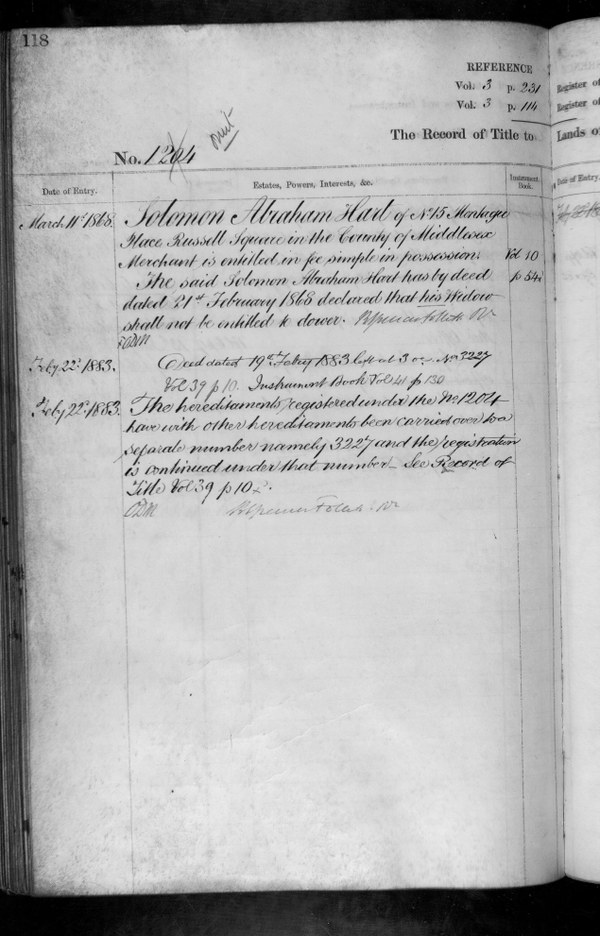 118
REFERENCE
Vol. 3 p. 231
Vol. 3 p. 114
Register of
Register of
omit
The Record of Title to
Lands o
No. 1204
Date of Entry.
Estates, Powers, Interests, &c.
Instrument Book.
Date of Entry.
March 11th 1868. Solomon Abraham Hart of No 15 Montague
Place Russell Square in the County of Middlesex
Merchant is entitled in fee simple in possession. Vol 10
The said Solomon Abraham Hart has by deed p 54
dated 21st February 1868 declared that his Widow
shall not be entitled to dower.
Feby 22d 1883. Deed dated 19th Feby 1883 left at 3 No 3227
Vol 39 p 10. Instrument Book Vol 41 p 130
Feby 22d 1883. The hereditaments registered under the No 1204
have with other hereditaments been carried over to a
separate number namely 3227 and the registration
is continued under that number - See Record of
Title Vol 39 p 10